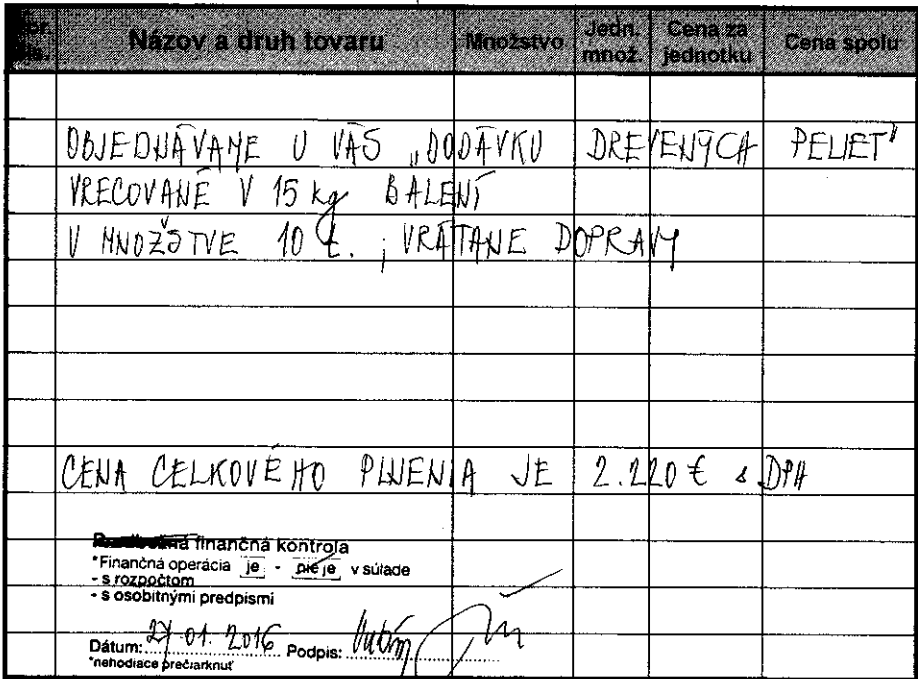 Por. čís. Názov a druh tovaru Množstvo Jedn. množ. Cena za jednotku Cena spolu
OBJEDNÁVAME U VÁS „DODÁVKU DREVENÝCH PELIET"
VRECOVANÉ V 15 kg BALENÍ
V MNOŽSTVE 10 t. ; VRÁTANE DOPRAVY
CENA CELKOVÉHO PLNENIA JE 2.220 € s DPH
finančná kontrola
*Finančná operácia je - nie je v súlade
- s rozpočtom
- s osobitnými predpismi
Dátum: 27.01.2016 Podpis:
*nehodiace prečiarknuť